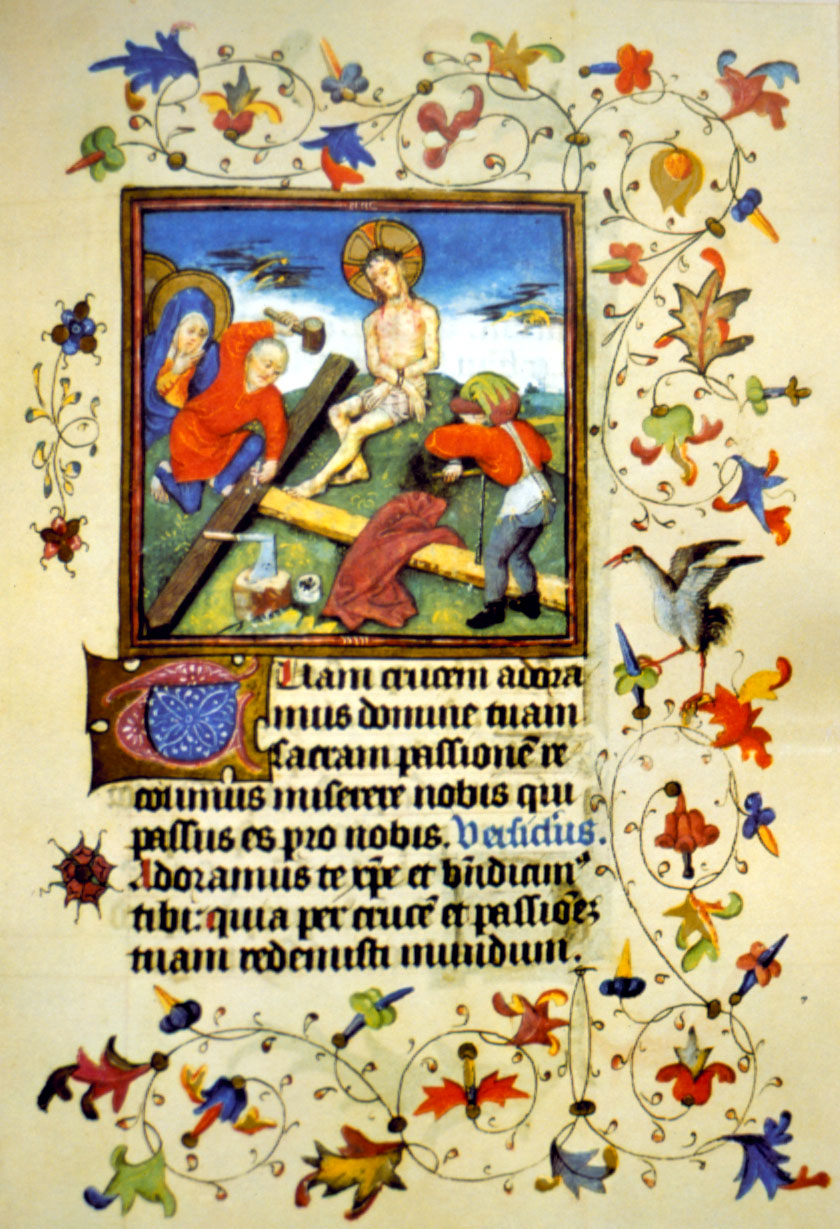 Tuam crucem adora
mus domine tuam
sacram passionē re
colimus miserere nobis qui
passus es pro nobis. Versiculus.
Adoramus te xp̄e et bn̄dicim⁹
tibi: quia per crucē et passionē
tuam redemisti mundum.